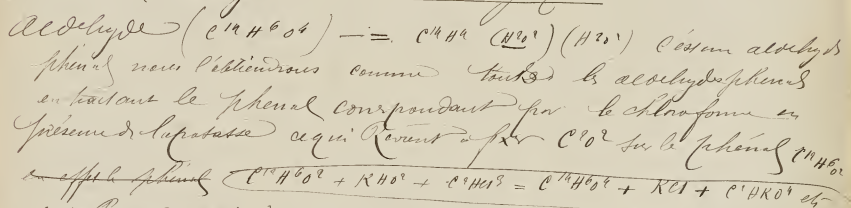 Aldehyde (C¹⁴H⁶O⁴) — = C¹⁴H⁴ (H²O²) (H²O²) C'est un aldehyde
phénol nous l'obtiendrons comme toutes les aldehydes phenols
en traitant le phenol correspondant par le chloroforme en
présence de la potasse ce qui Revient a fixer C²O² sur le phénol C¹²H⁶O²
en effet le phénol C¹²H⁶O² + KHO² + C²HCl³ = C¹⁴H⁶O⁴ + KCl + C²HKO⁴ etc